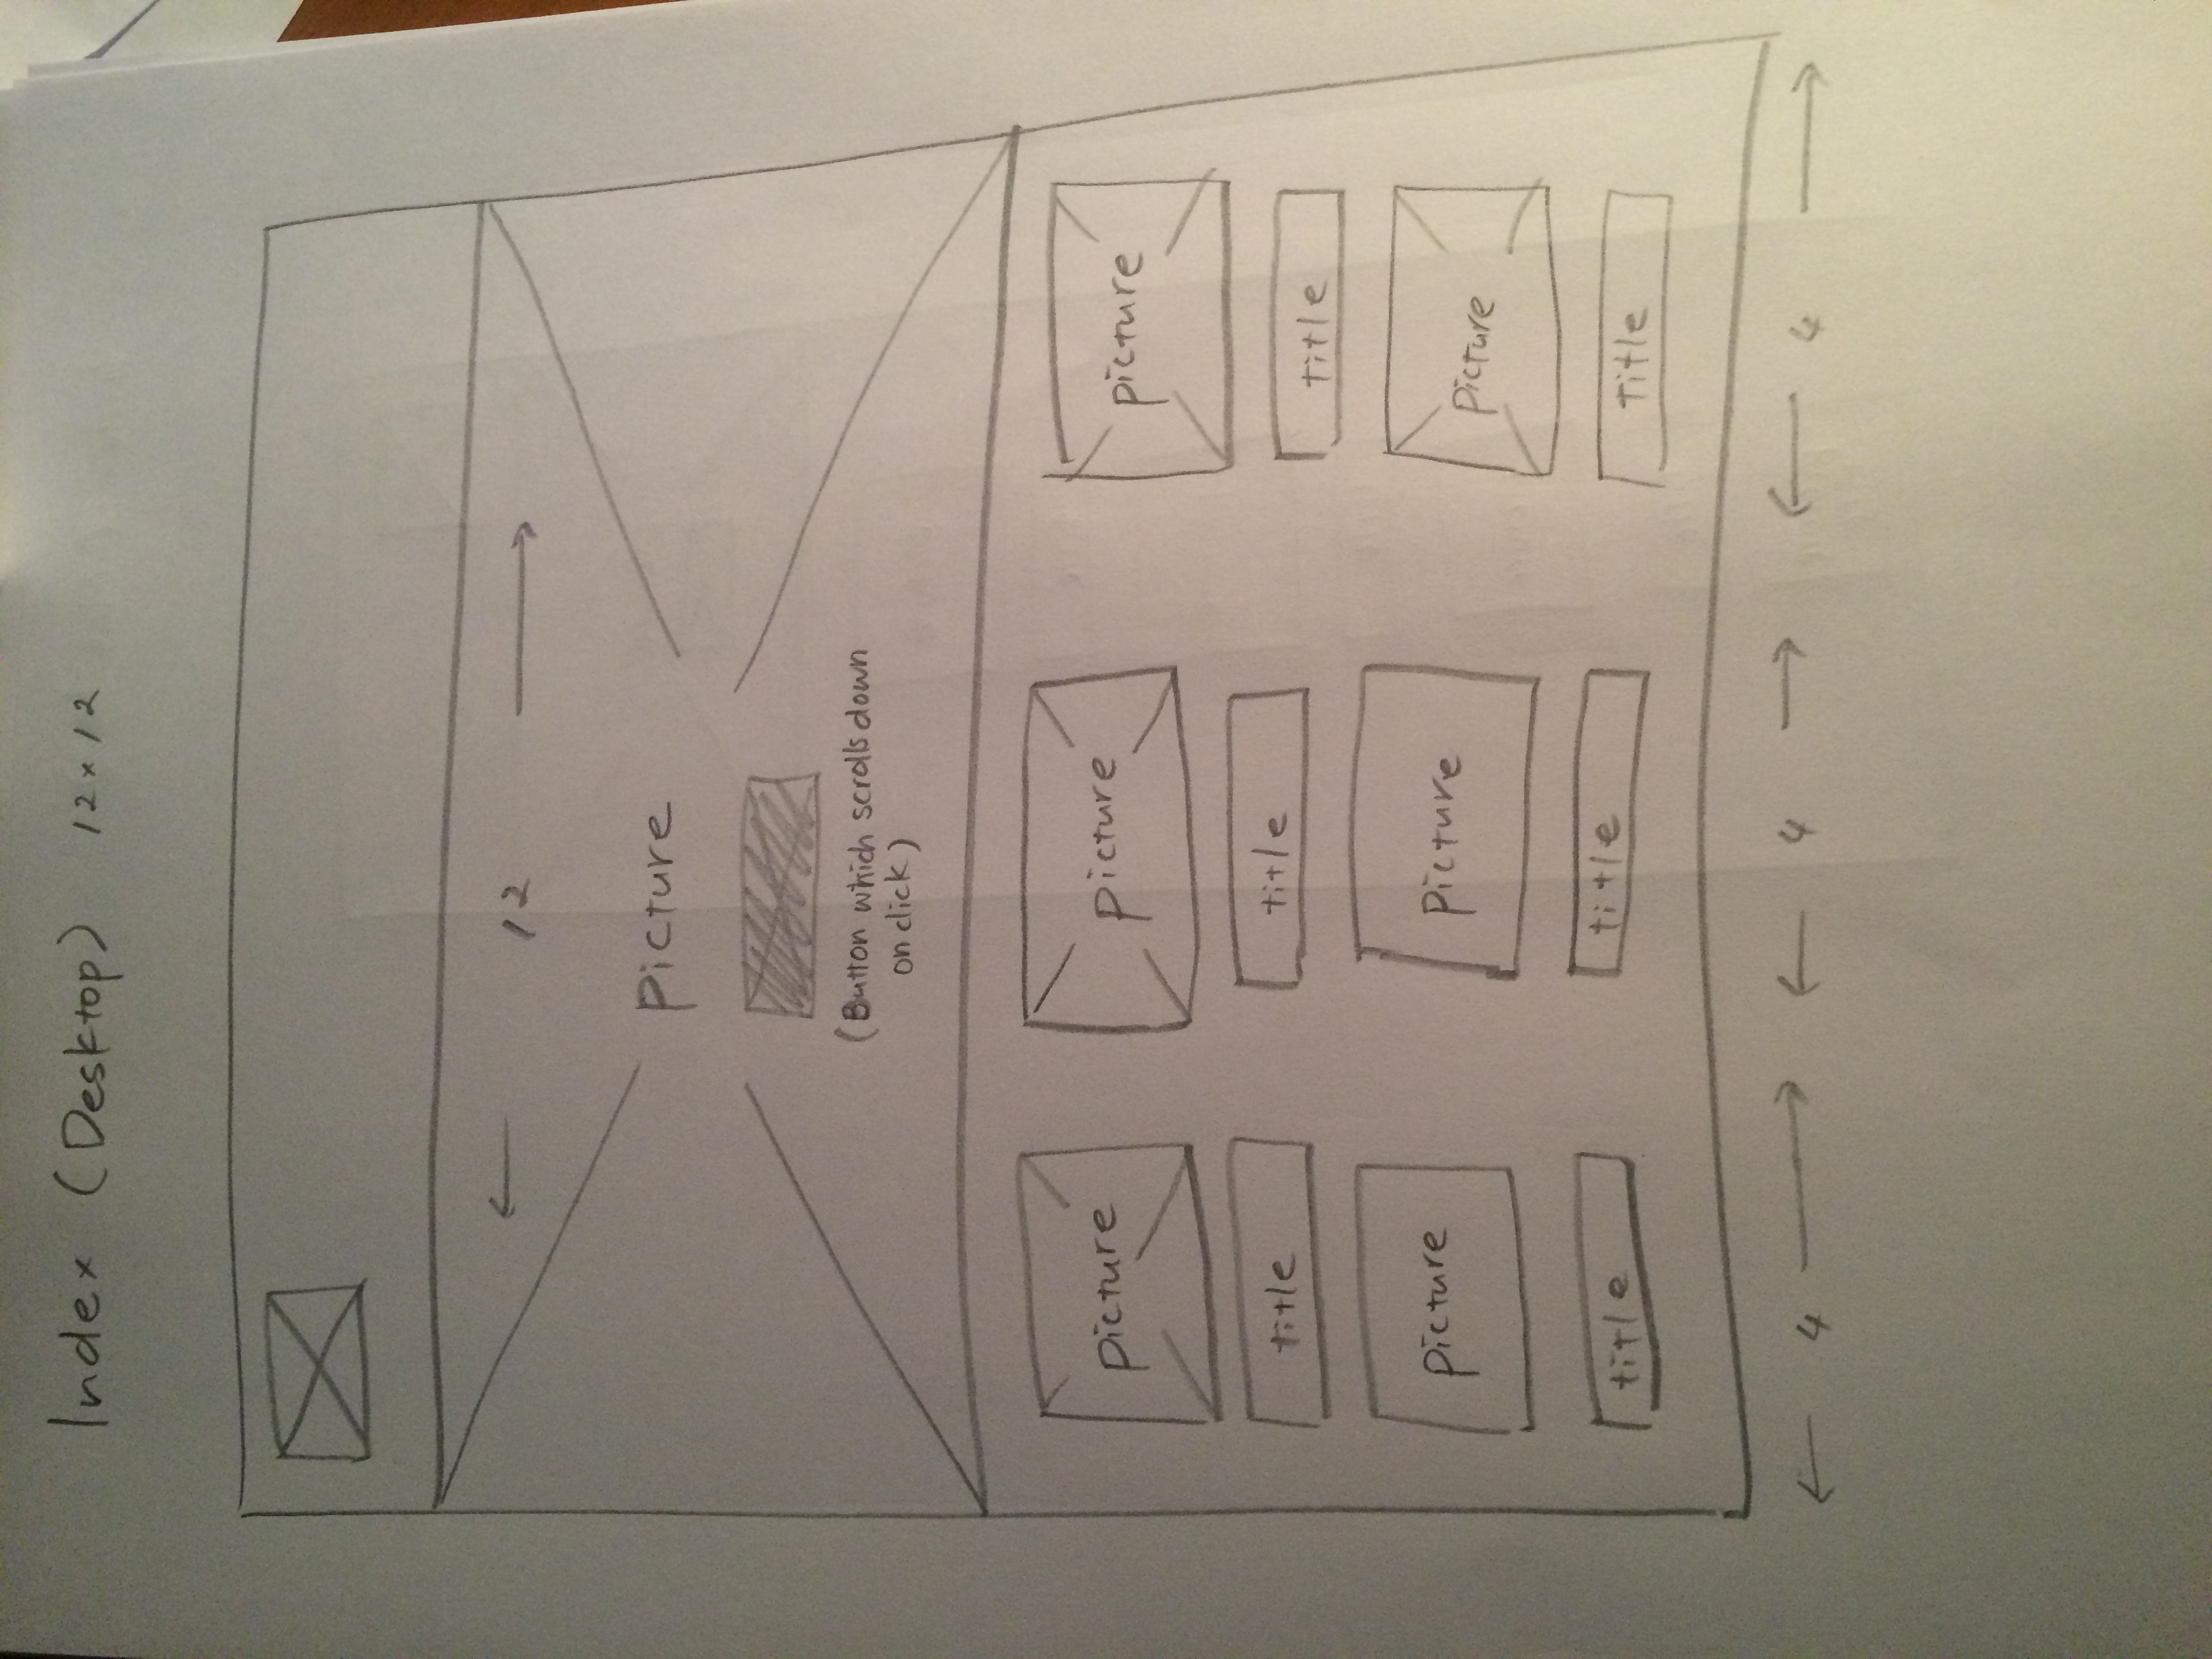 Index (Desktop) 12×12
12
picture
(Button which scrolls down
on click)
picture picture picture
title title title
picture picture picture
title title title
4 4 4